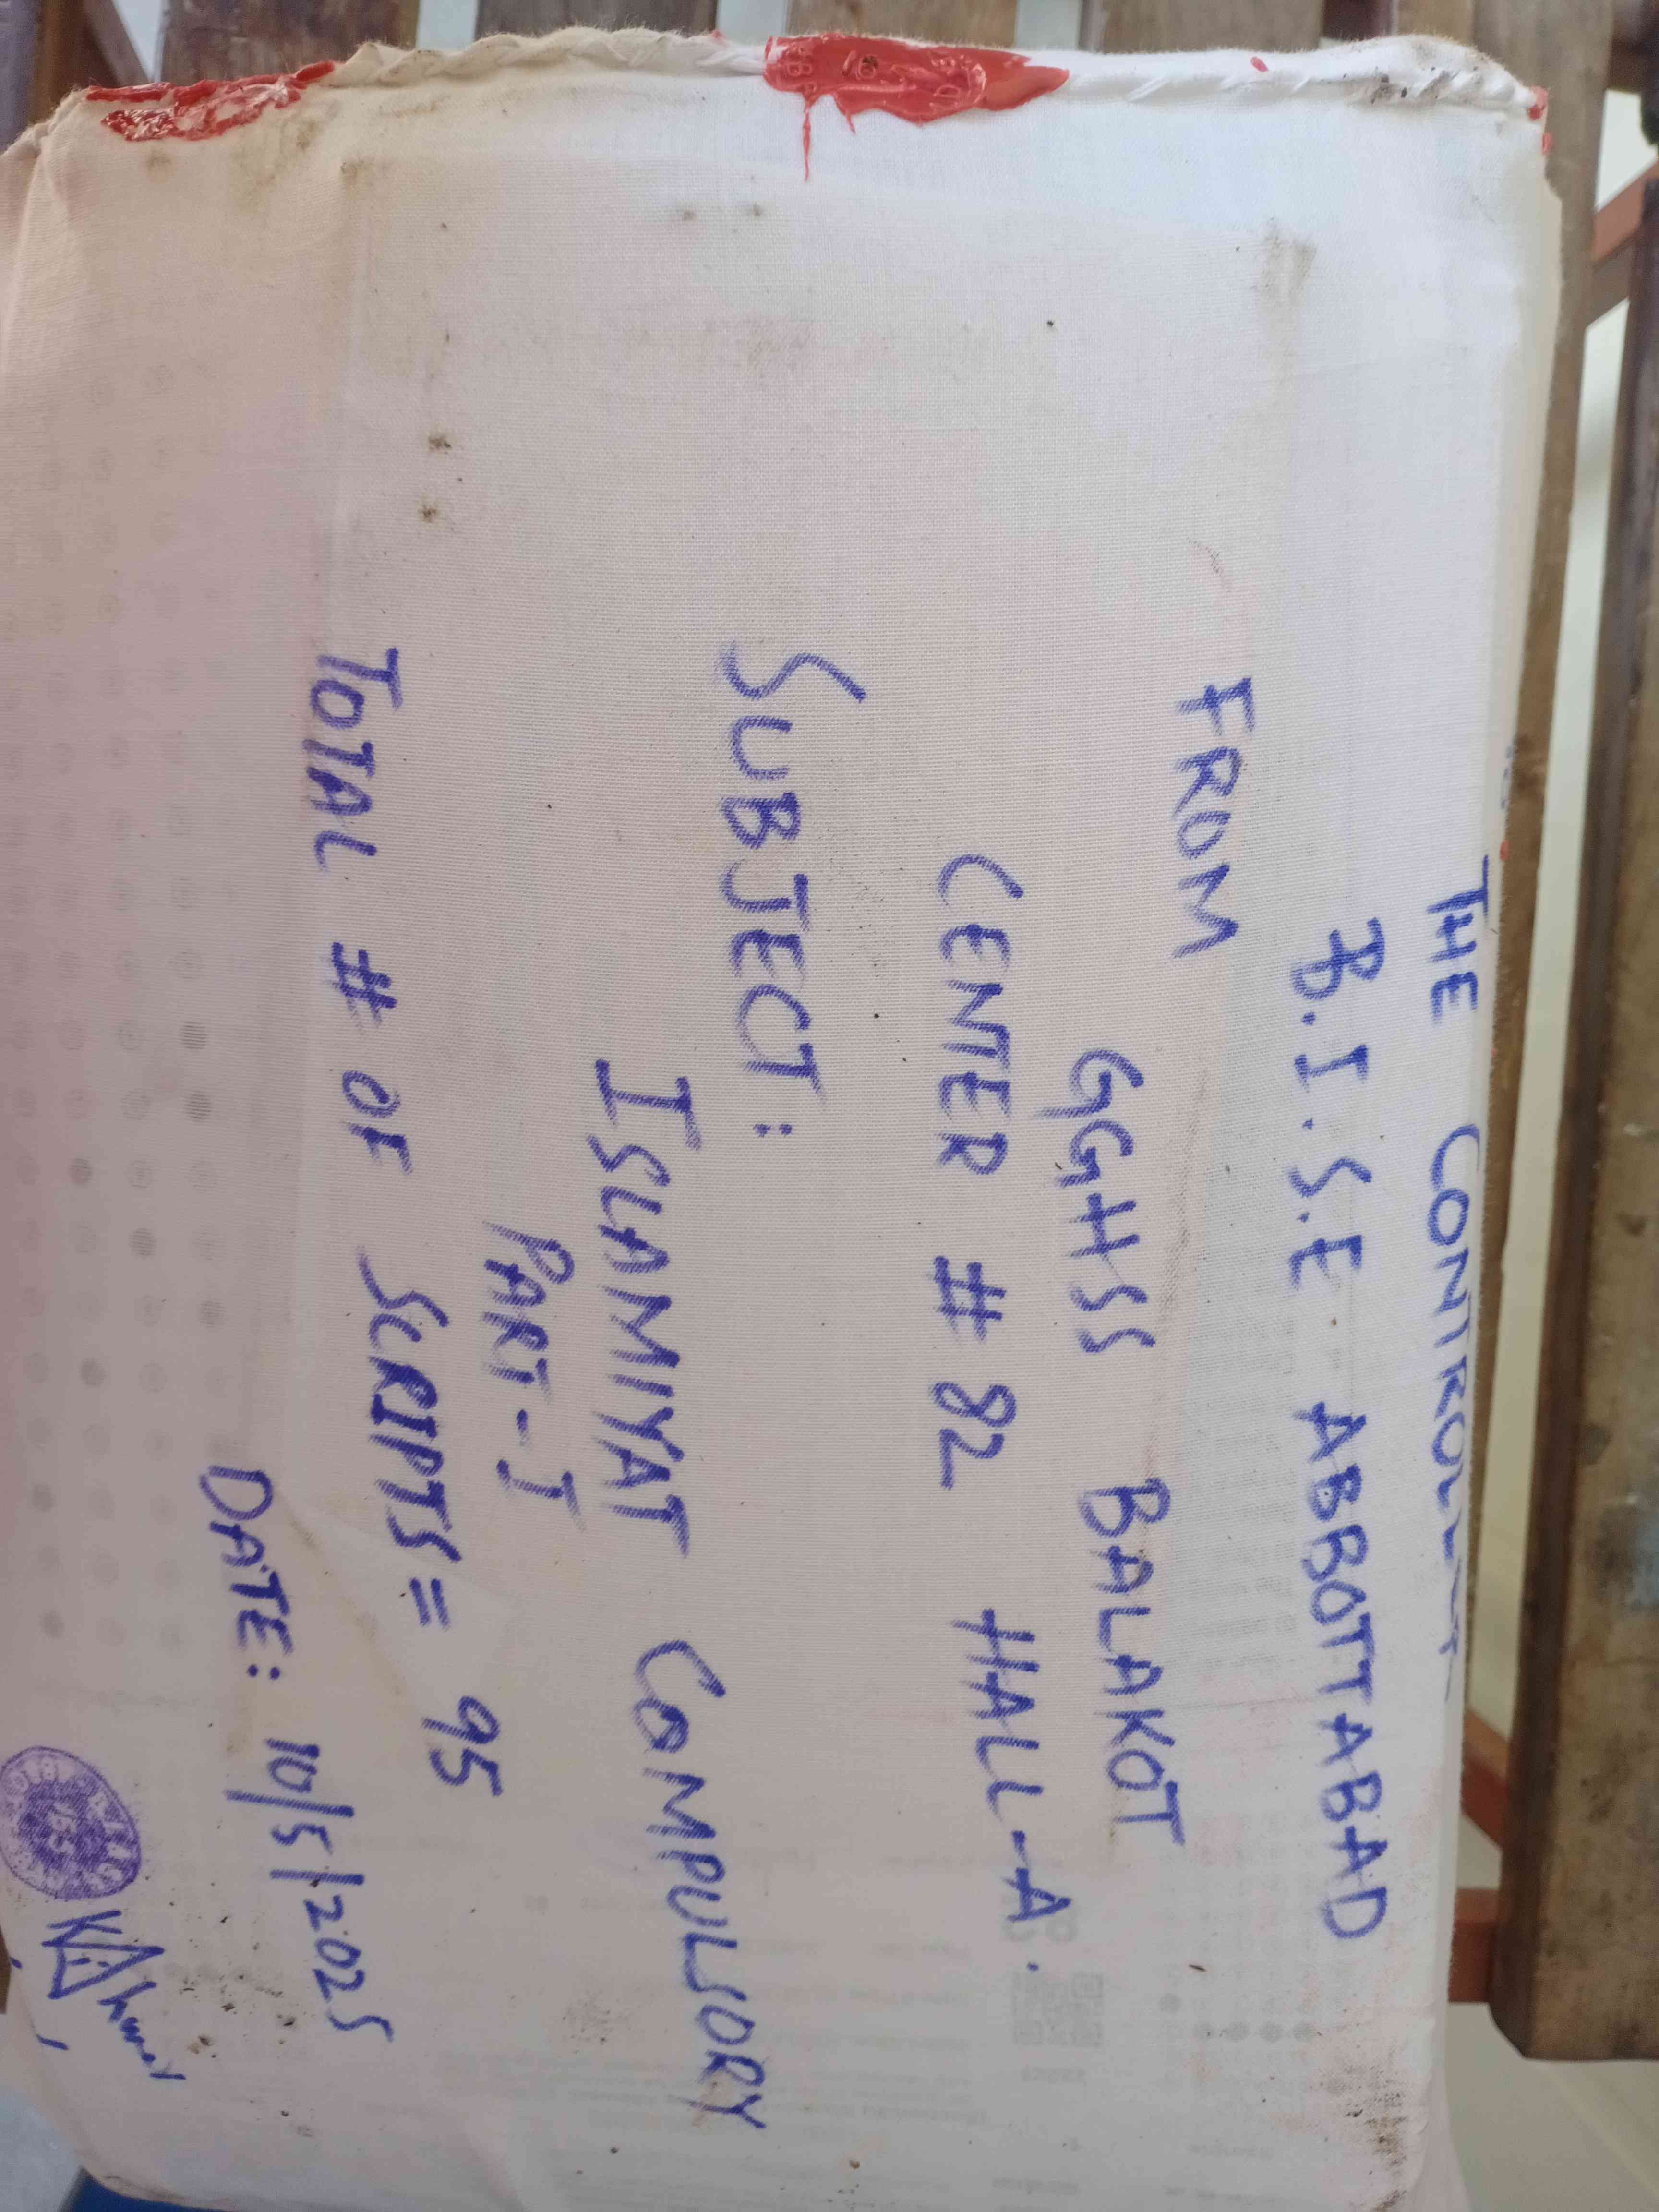 THE CONTROLLER
B.I.S.E ABBOTTABAD
FROM
GGHSS BALAKOT
CENTER # 82 HALL-A.
SUBJECT:
ISLAMIYAT COMPULSORY
PART-I
TOTAL # OF SCRIPTS = 95
DATE: 10/5/2025